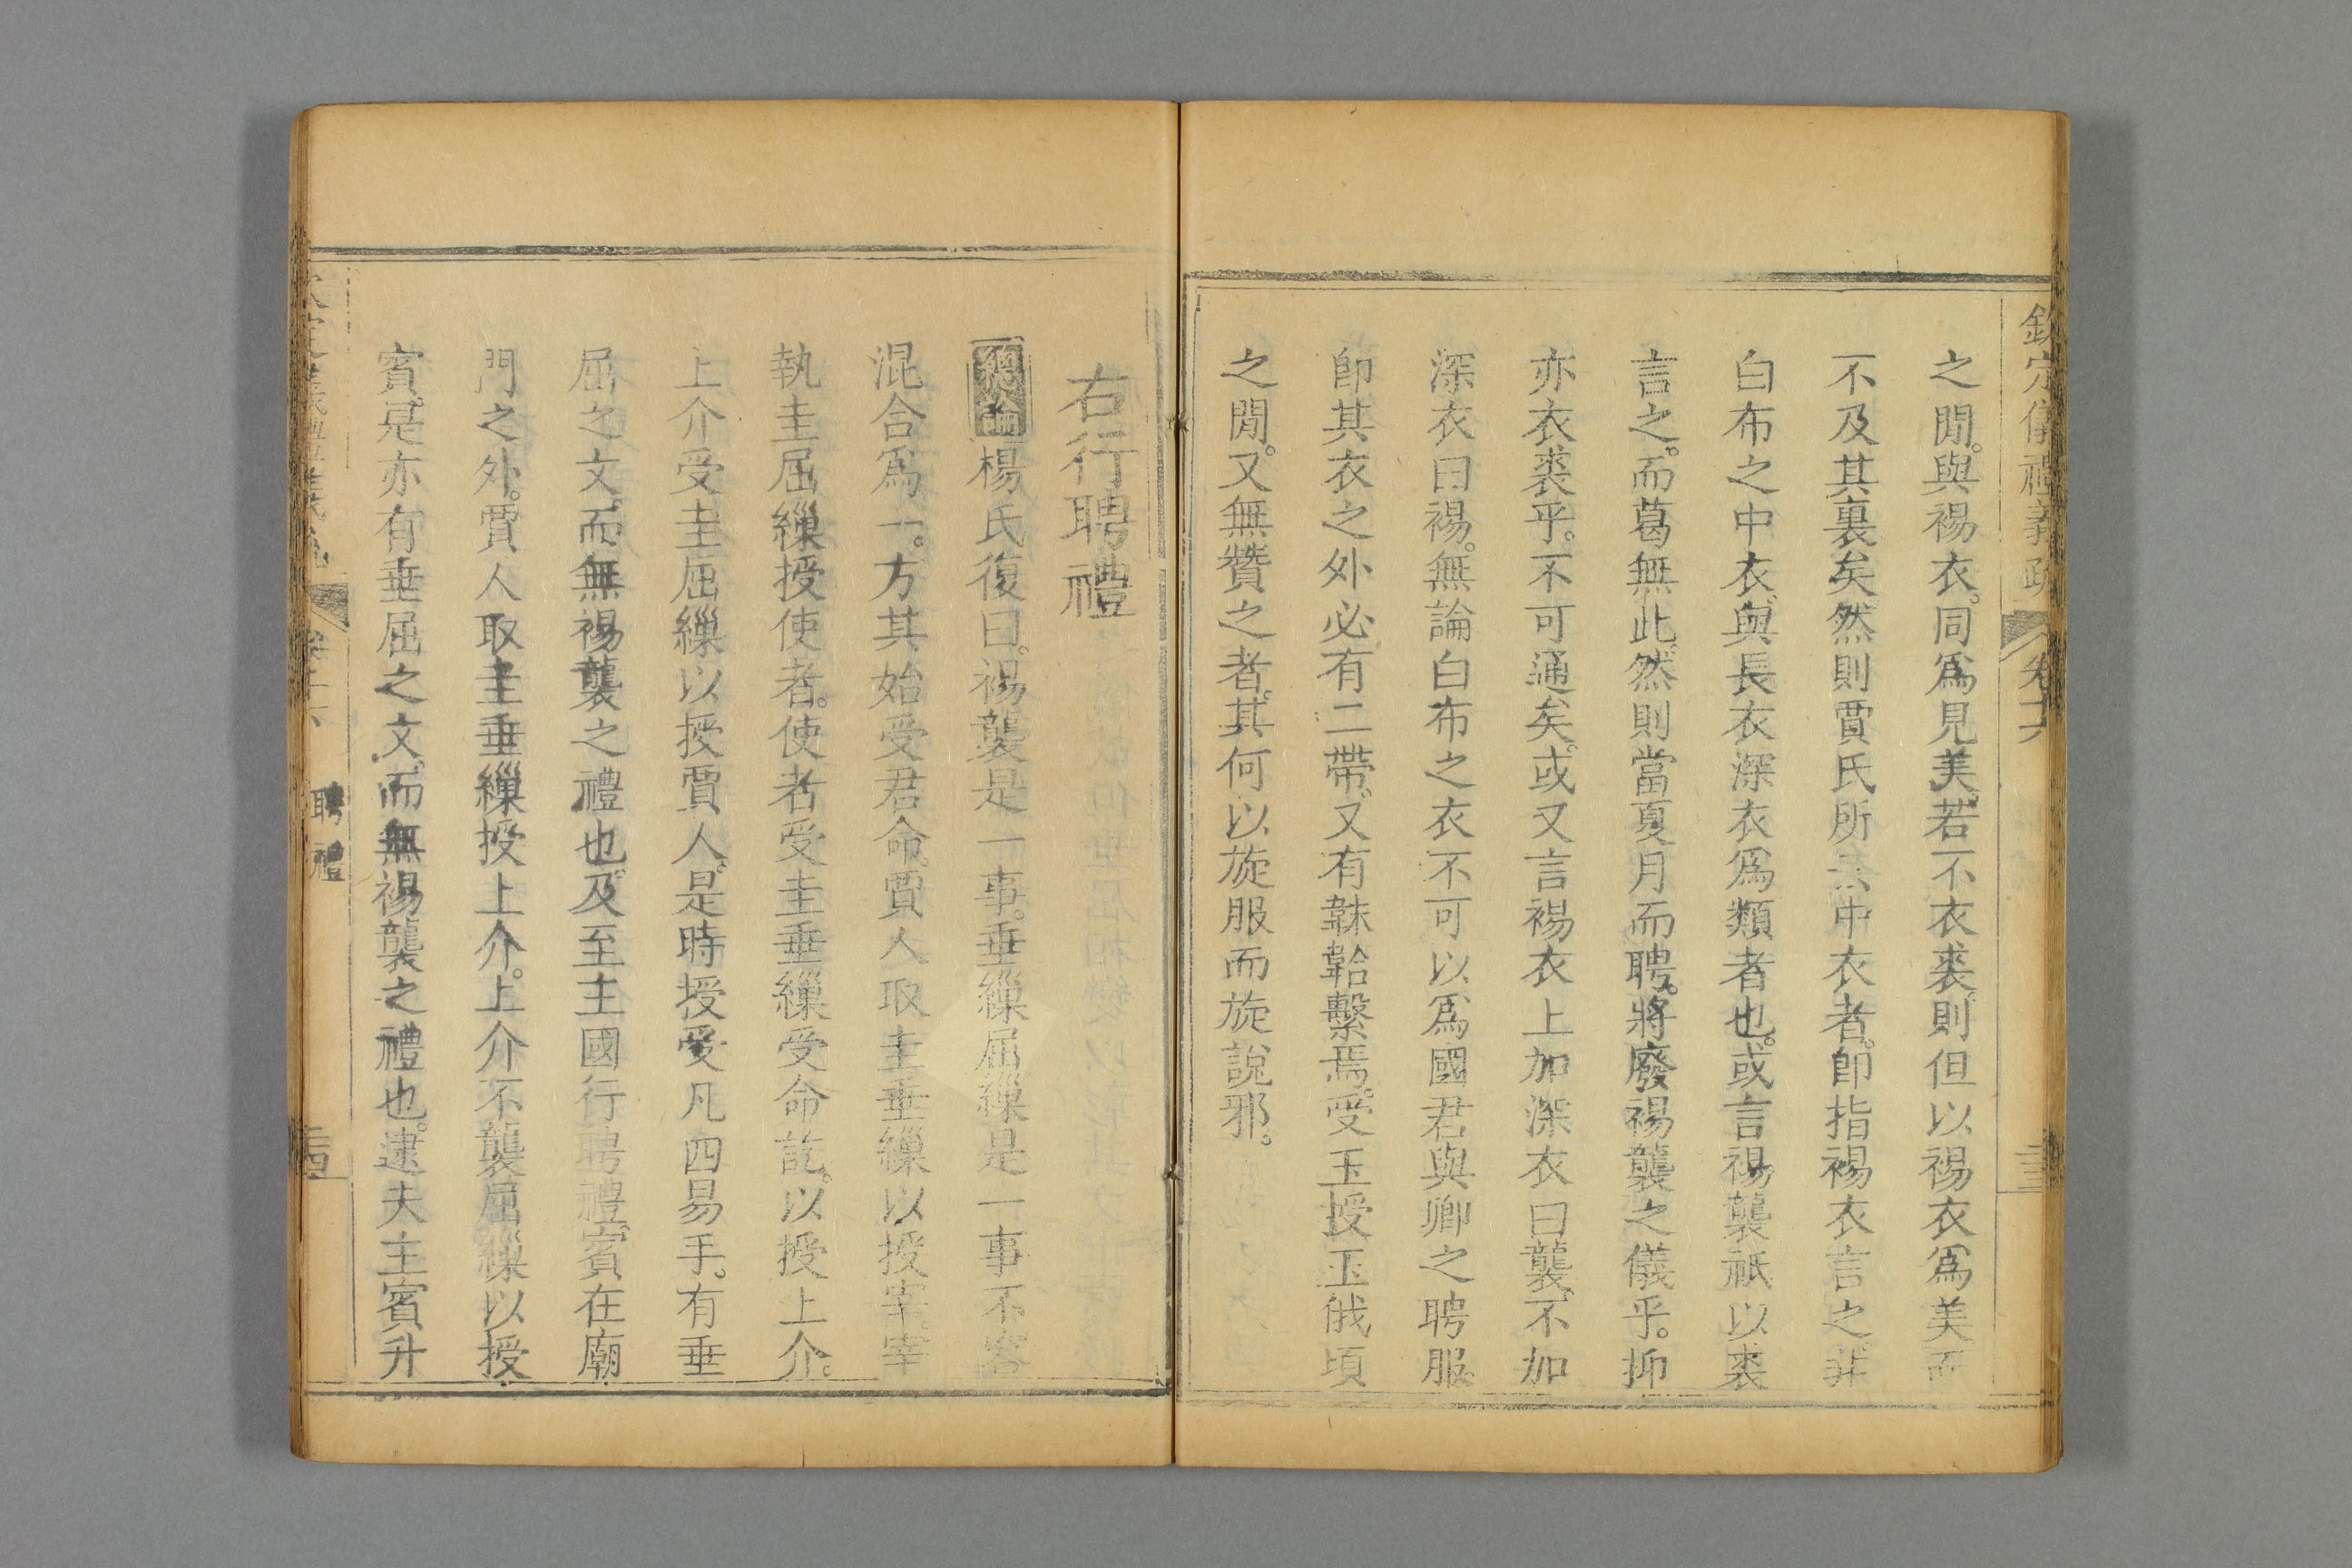 欽定儀禮義疏 卷十六
之閒。與裼衣。同爲見美。若不衣裘。則但以裼衣爲美而
不及其裏矣。然則賈氏所云中衣者。卽指裼衣言之。非
白布之中衣。與長衣深衣爲類者也。或言裼襲祇以裘
言之。而葛無此。然則當夏月而聘。將廢裼襲之儀乎。抑
亦衣裘乎。不可通矣。或又言裼衣上加深衣曰襲。不加
深衣曰裼。無論白布之衣不可以爲國君與卿之聘服。
卽其衣之外必有二帶。又有韎韐繫焉。受玉授玉俄頃
之閒。又無贊之者。其何以旋服而旋說邪。
右行聘禮
總論楊氏復曰。裼襲是一事。垂繅屈繅是一事不容
混合爲一。方其始受君命。賈人取圭垂繅以授宰。宰
執圭屈繅授使者。使者受圭垂繅受命訖。以授上介。
上介受圭屈繅以授賈人。是時授受凡四易手。有垂
屈之文。而無裼襲之禮也。及至主國行聘禮。賓在廟
門之外。賈人取圭垂繅授上介。上介不襲屈繅以授
賓。是亦有垂屈之文。而無裼襲之禮也。逮夫主賓升
聘禮